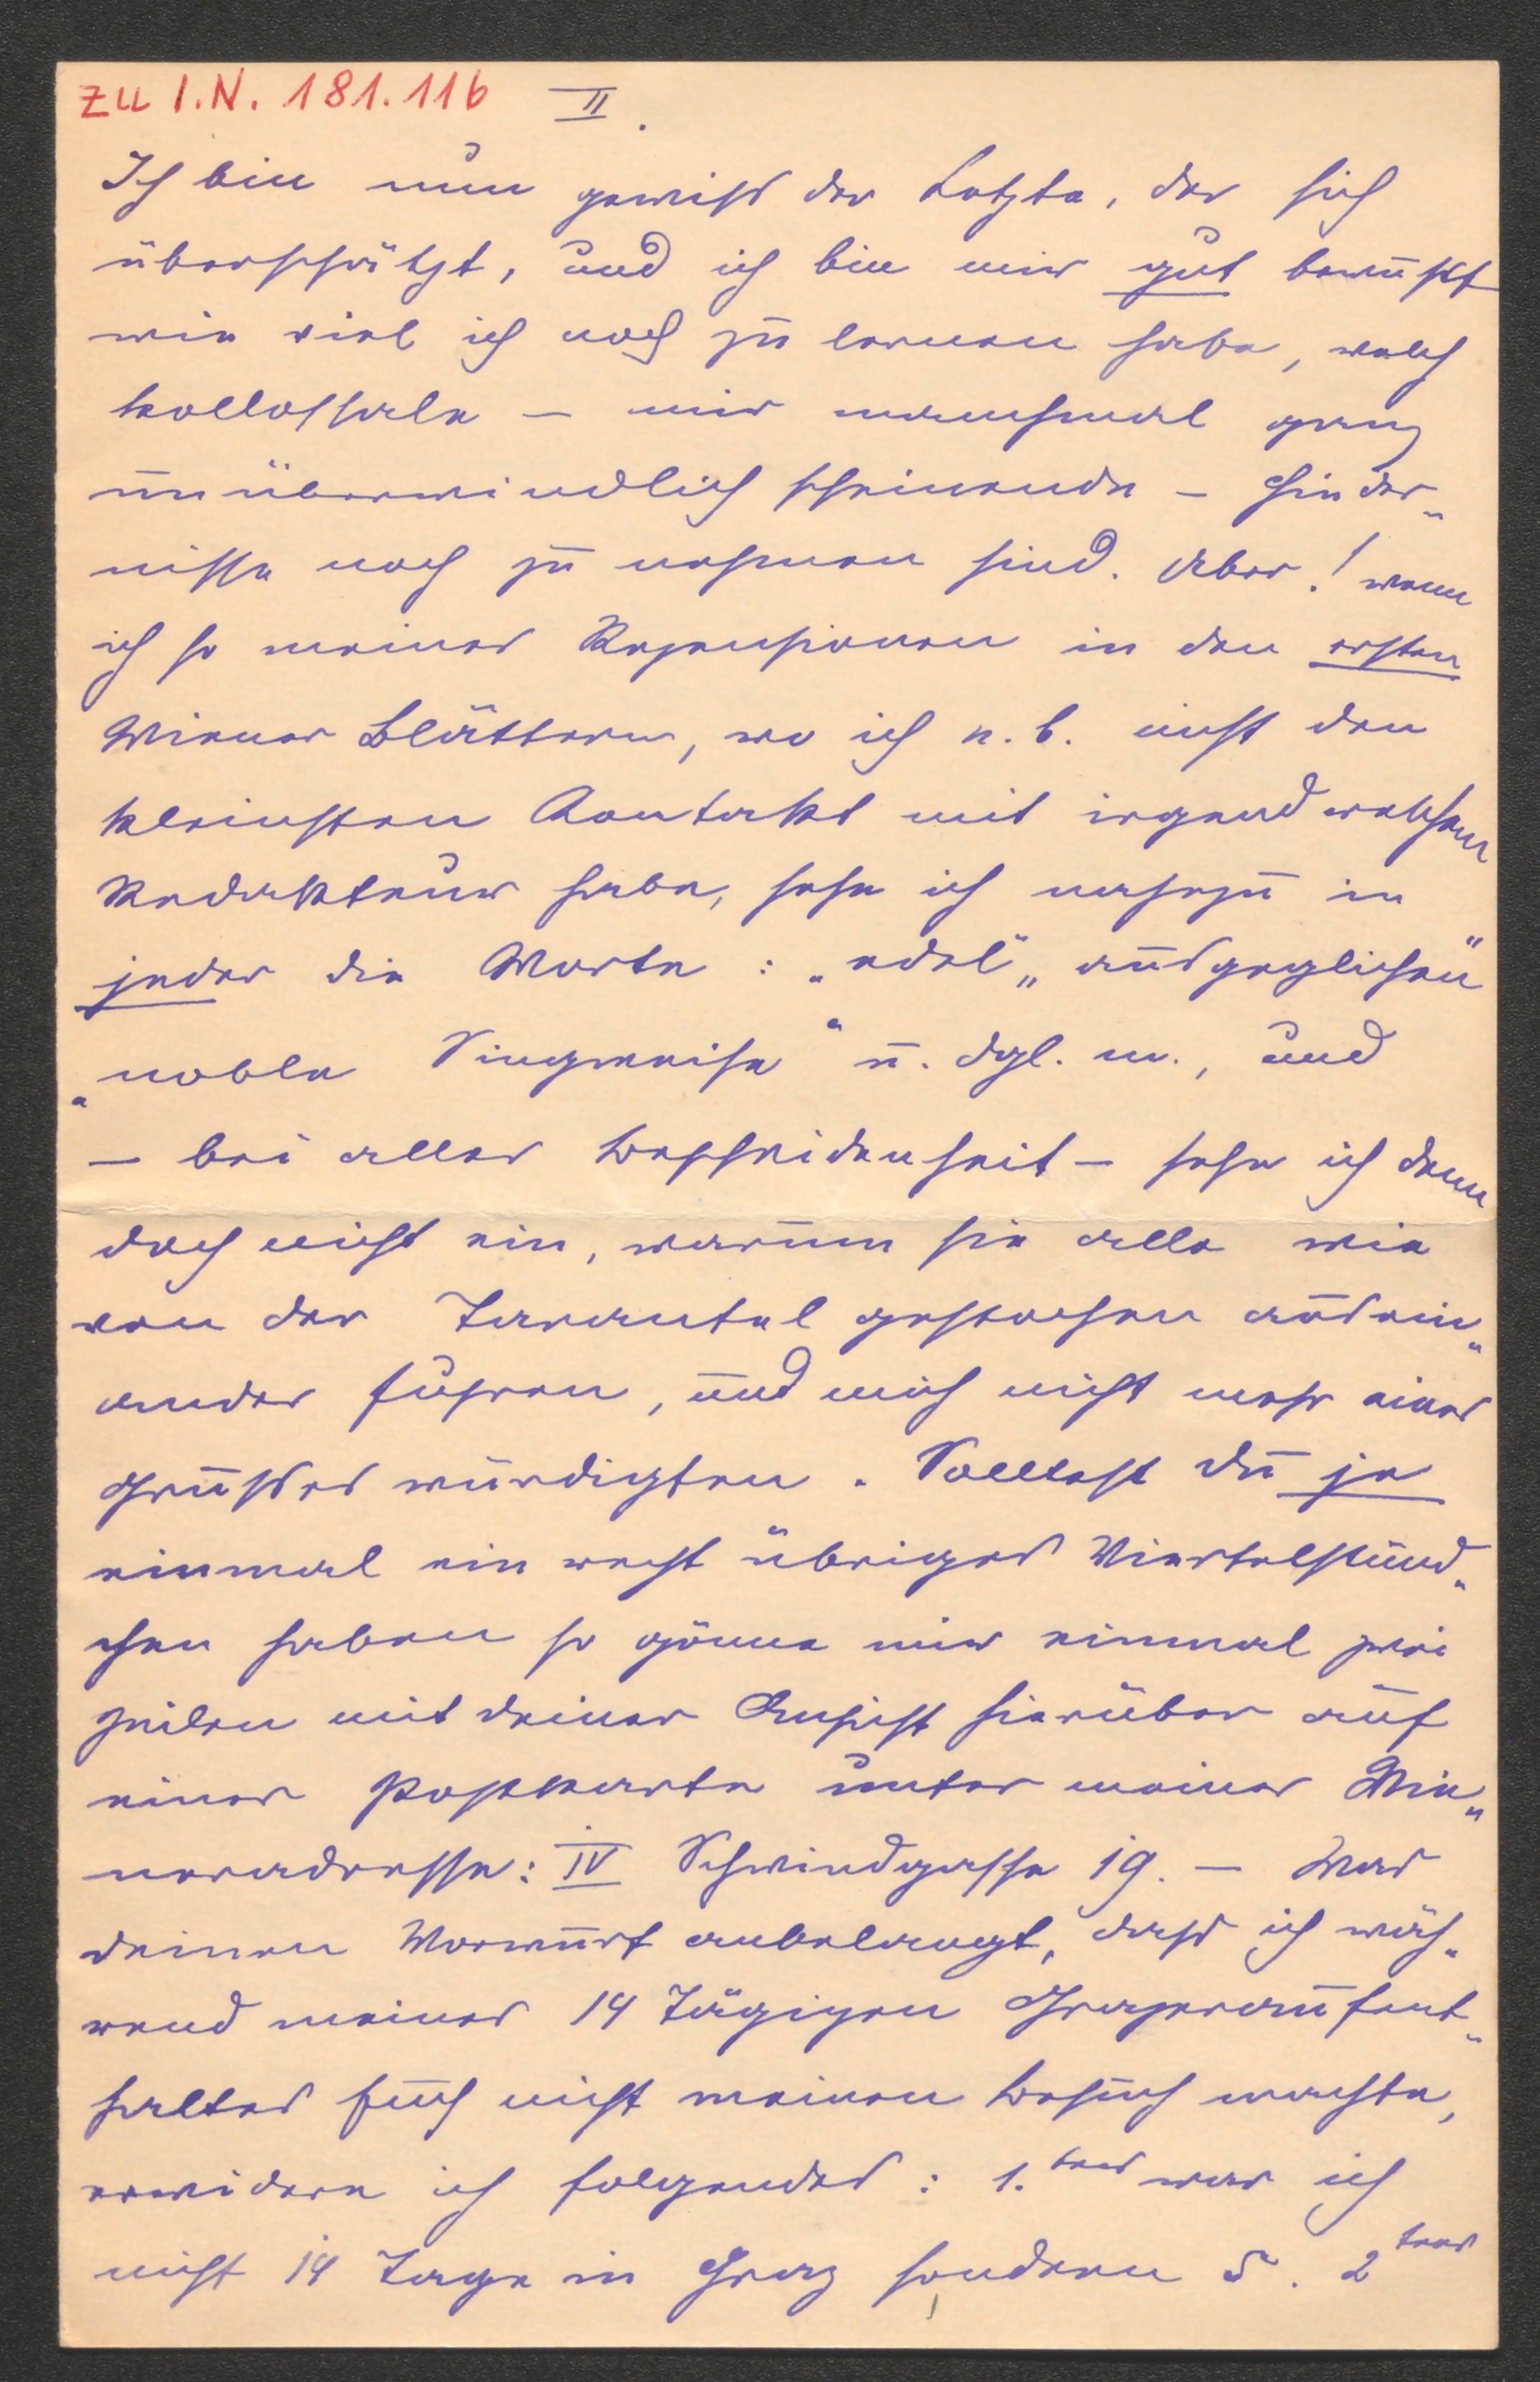 zu I.N. 181.116 II.
Ich bin nun gewiß der Letzte, der sich
überschätzt, und ich bin mir gut bewußt
wie viel ich noch zu lernen habe, welch
kollossale – mir manchmal ganz
unüberwindlich scheinende – Hinder„
nisse noch zu nehmen sind. Aber! wenn
ich so meine Rezensionen in den ersten
Wiener Blättern, wo ich n. b. nicht den
kleinsten Kontakt mit irgend welchem
Redakteur habe, sehe ich nahezu in
jeder die Worte: „edel“ „ausgeglichen“
„noble Singweise“ u. dgl. m., und
– bei aller Bescheidenheit – sehe ich denn
doch nicht ein, warum sie alle wie
von der Tarantel gestochen ausein„
ander fuhren, und mich nicht mehr eines
Grußes würdigten. Solltest Du je
einmal ein recht übriges Viertelstünd„
chen haben so gönne mir einmal zwei
Zeilen mit deiner Ansicht hierüber auf
einer Postkarte unter meiner Wie„
neradresse: IV Schwindgasse 19. – Was
deinen Vorwurf anbelangt, dass ich wäh„
rend meines 14 tägigen Grazeraufent„
haltes Euch nicht meinen Besuch machte,
erwidere ich folgendes: 1.tens war ich
nicht 14 Tage in Graz sondern 5. 2tens